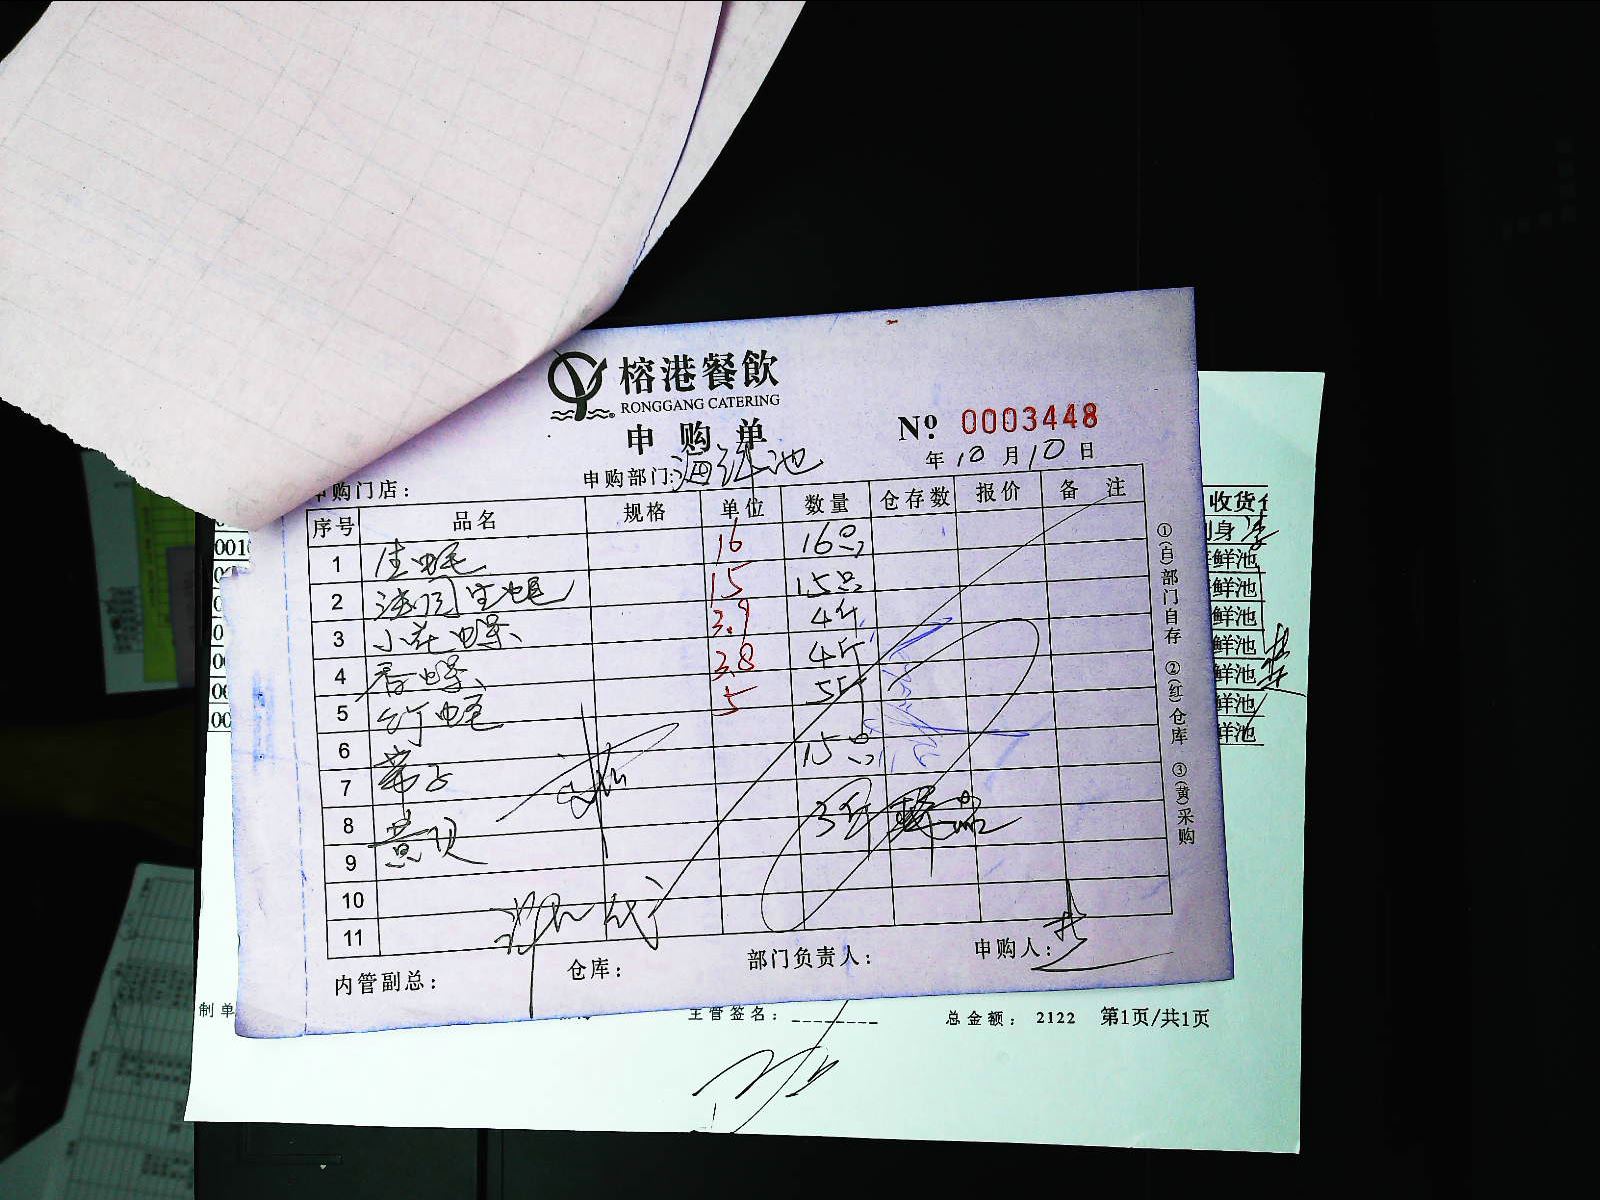 榕港餐飲
RONGGANG CATERING
申购单
Nº 0003448
年 10 月 10 日
申购门店：
申购部门：海鲜池
序号 品名 规格 单位 数量 仓存数 报价 备注
1 生蚝 16 16只
2 法国生蚝 15 15只
3 小花螺 3.9 4斤
4 香螺 3.8 4斤
5 竹蛏 5 5斤
6
7 带子 15只
8
9 黄贝 3斤
10
11
内管副总： 仓库： 部门负责人： 申购人：
①(白)部门自存 ②(红)仓库 ③(黄)采购
收货
鲜池
鲜池
鲜池
鲜池
鲜池
鲜池
鲜池
制单
主管签名：
总金额： 2122
第1页/共1页